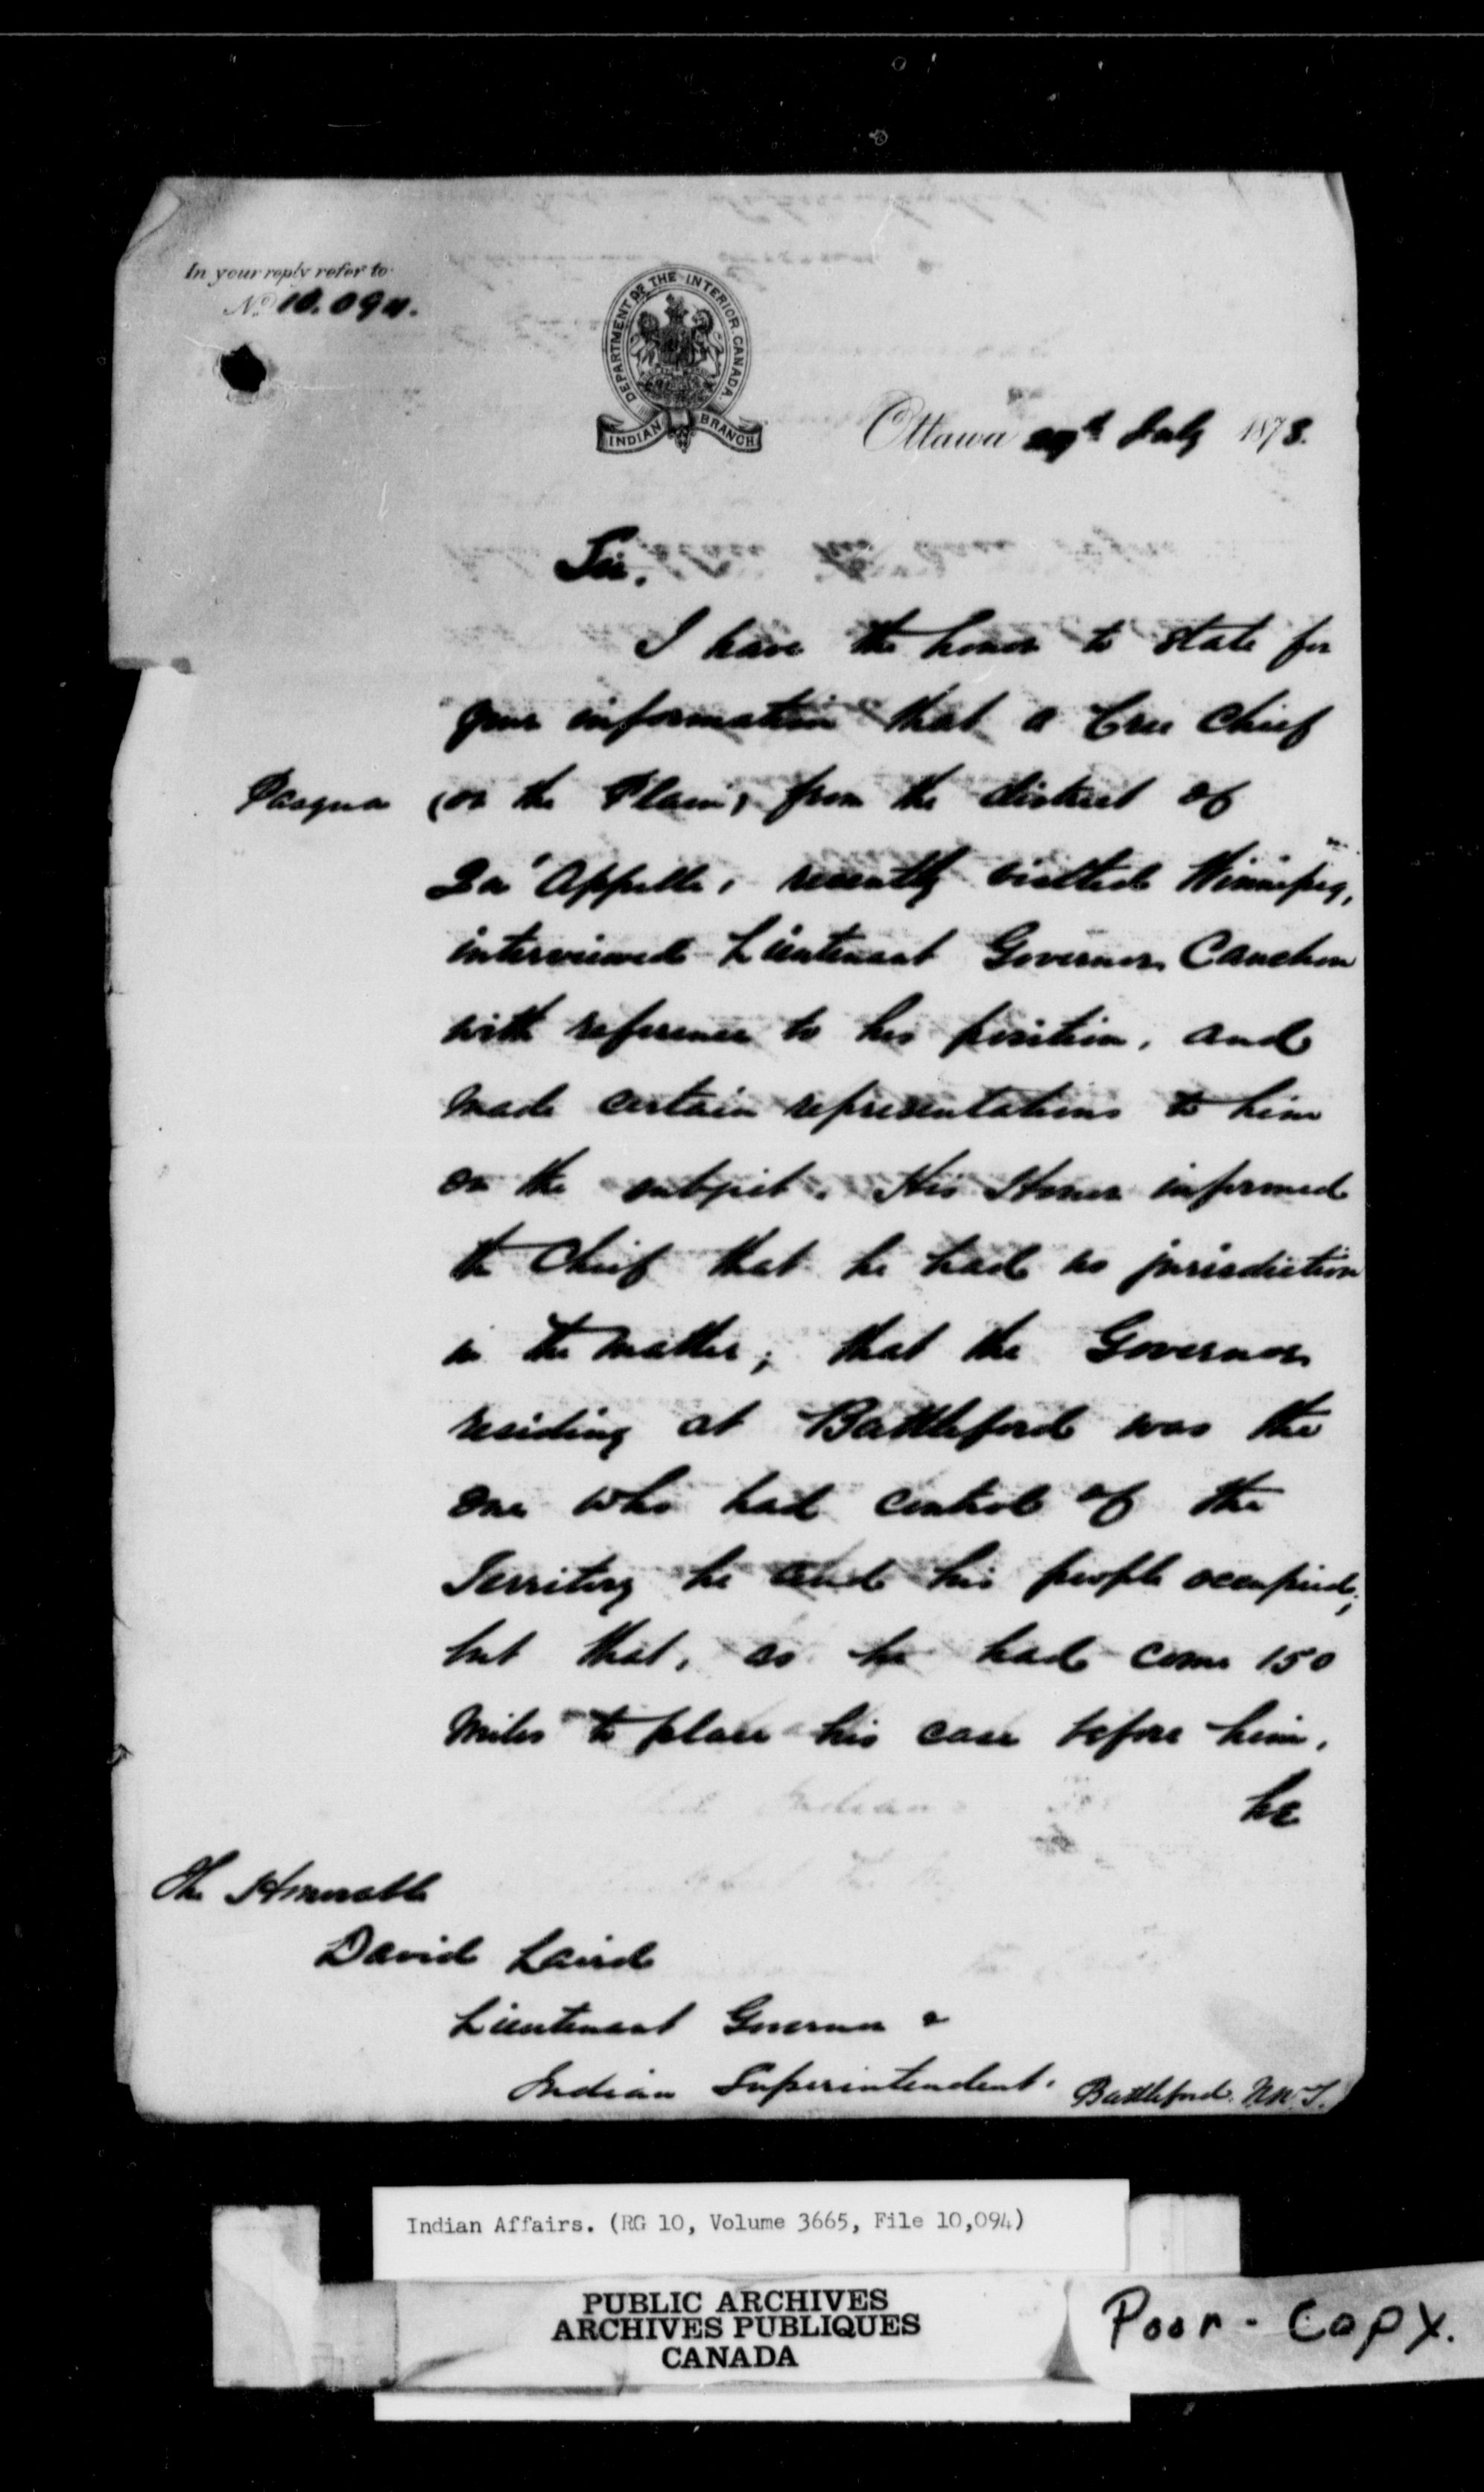 In your reply refer to
No 10.094.
DEPARTMENT OF THE INTERIOR. CANADA.
INDIAN BRANCH
Ottawa 29th July 1878.
Sir,
I have the honor to state for
your information that a Cree Chief
Pasqua (or the Plain) from the district of
Qu'Appelle, recently visited Winnipeg,
interviewed Lieutenant Governor Cauchon
with reference to his position, and
made certain representations to him
on the subject. His Honor informed
the Chief that he had no jurisdiction
in the matter; that the Governor
residing at Battleford was the
one who had control of the
Territory he and his people occupied;
but that, as he had come 150
miles to place his case before him,
he
The Honorable
David Laird
Lieutenant Governor &
Indian Superintendent. Battleford. N.W.T.
Indian Affairs. (RG 10, Volume 3665, File 10,094)
PUBLIC ARCHIVES
ARCHIVES PUBLIQUES
CANADA
Poor - Copy.